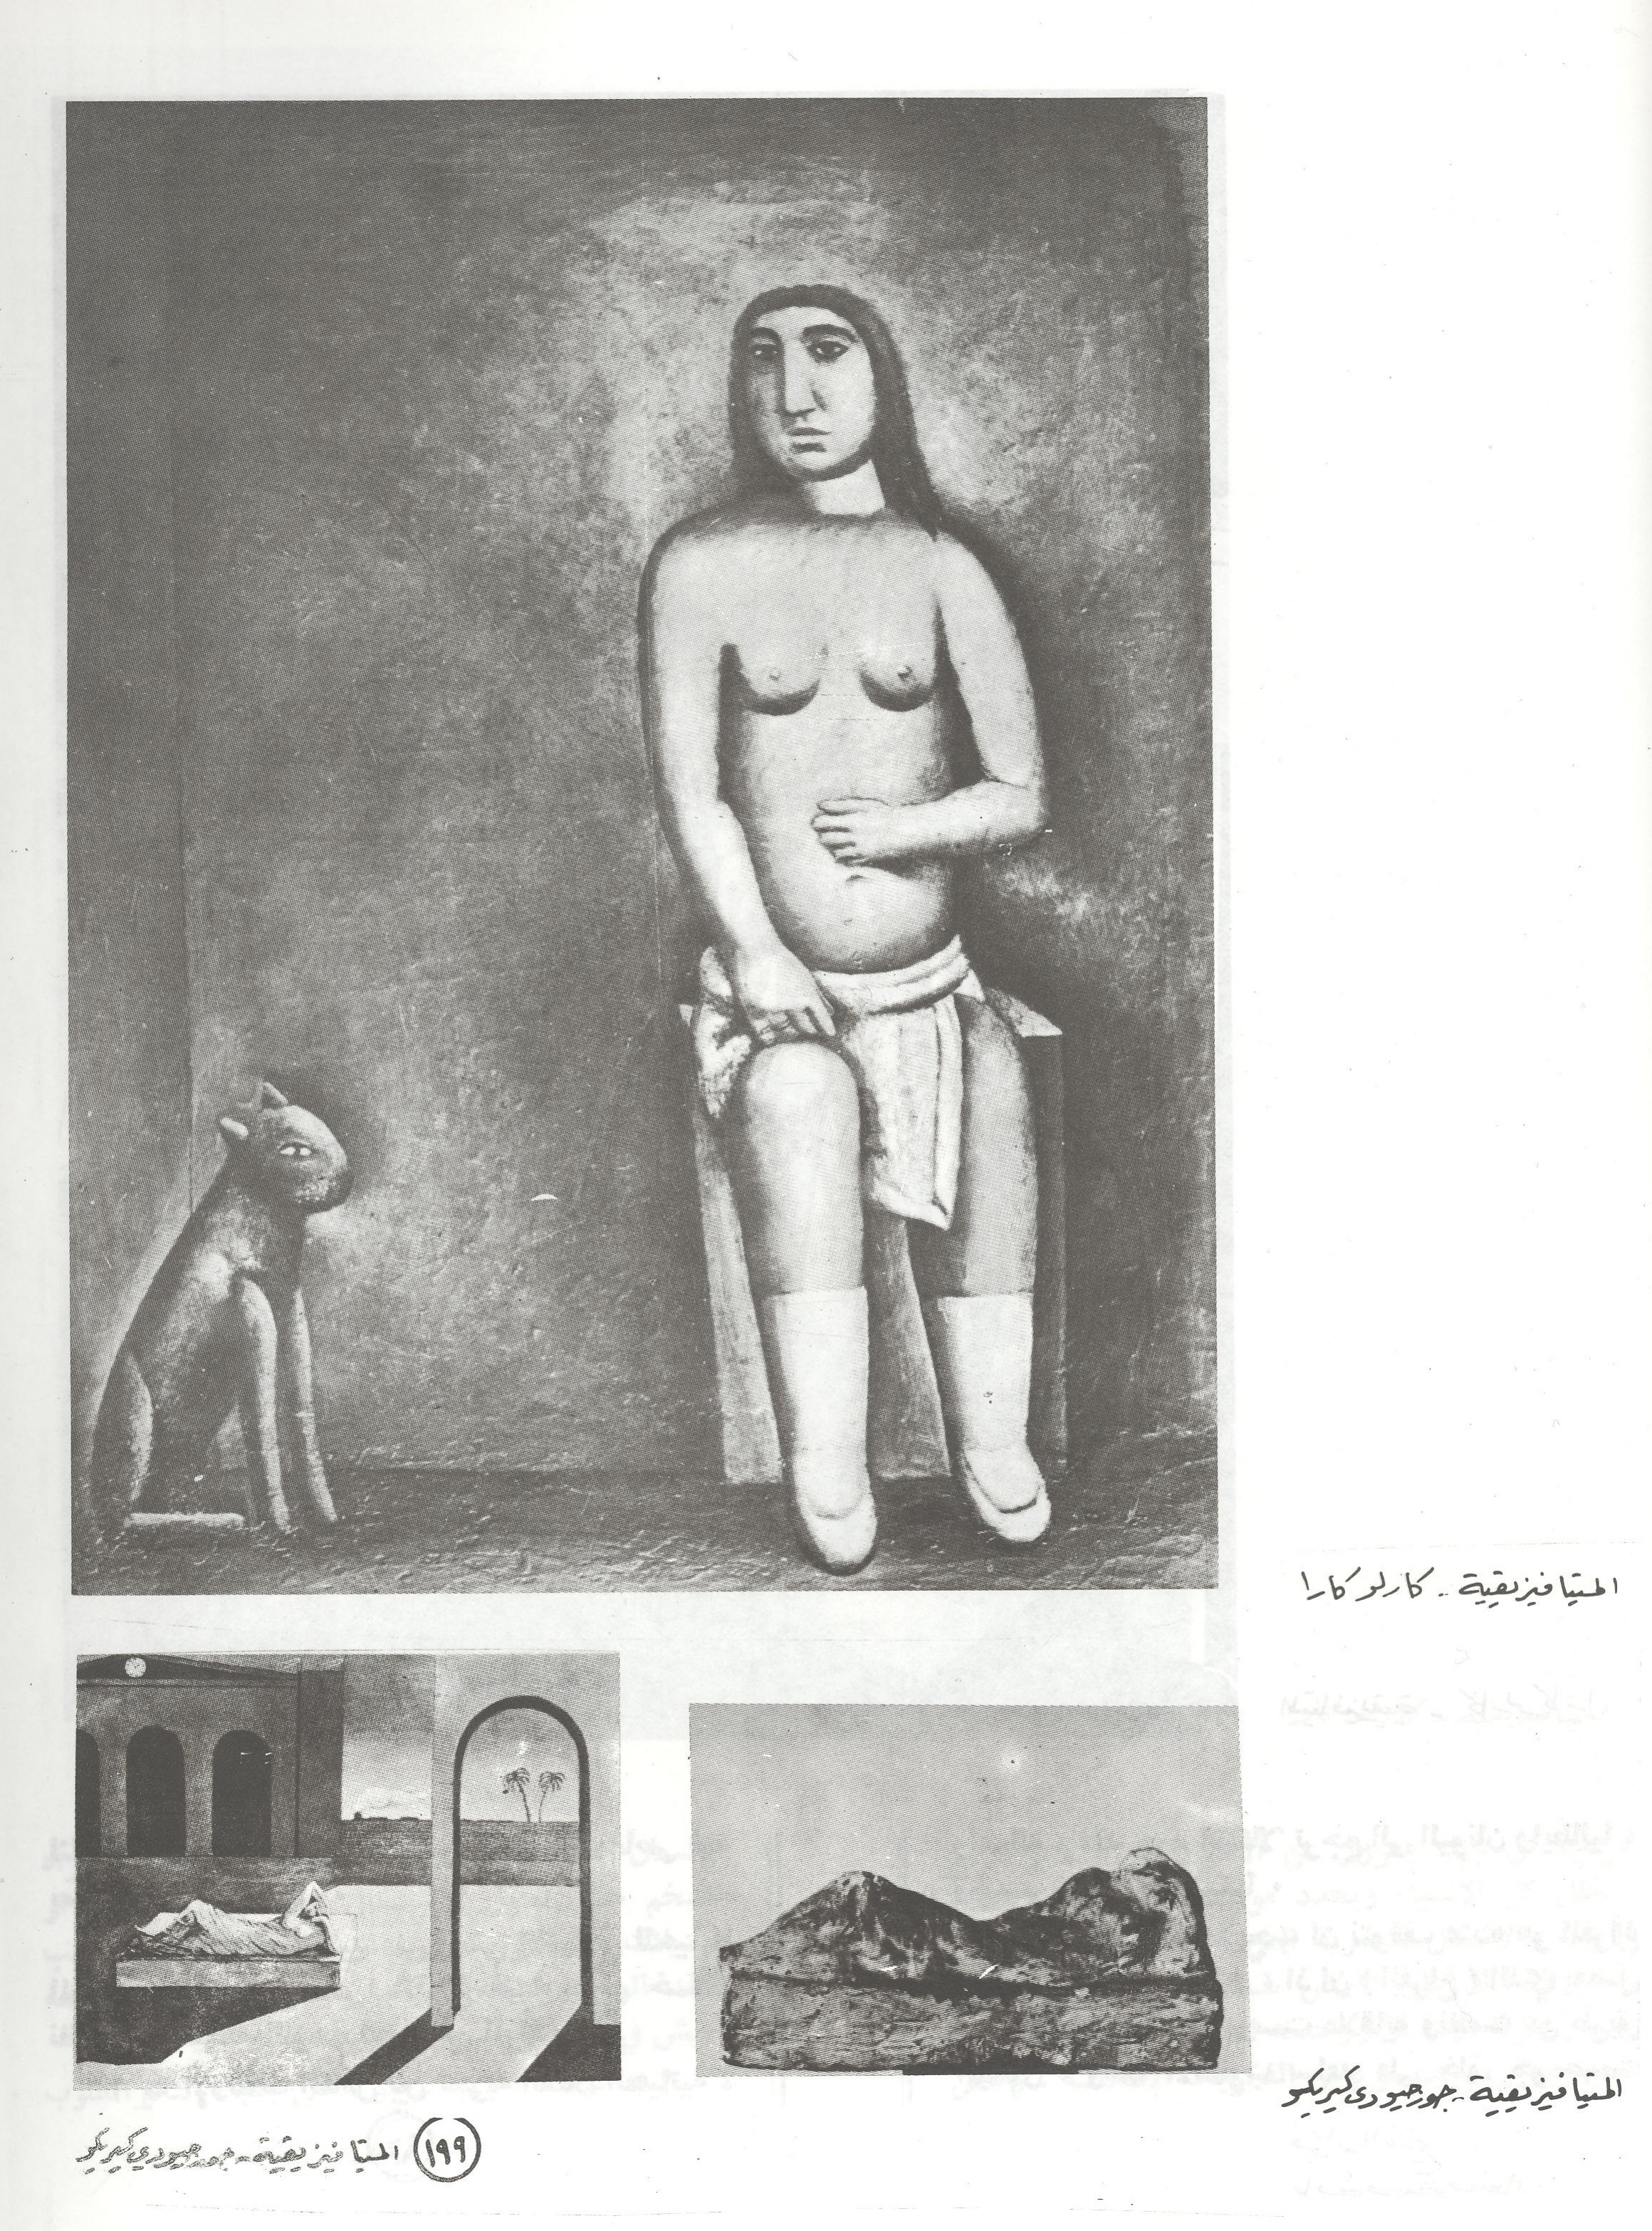 المتيافيزيقية - كارلو كارا
المتيافيزيقية - جورجيو دى كيريكو
١٩٩
المتيافيزيقية - جورجيو دي كيريكو